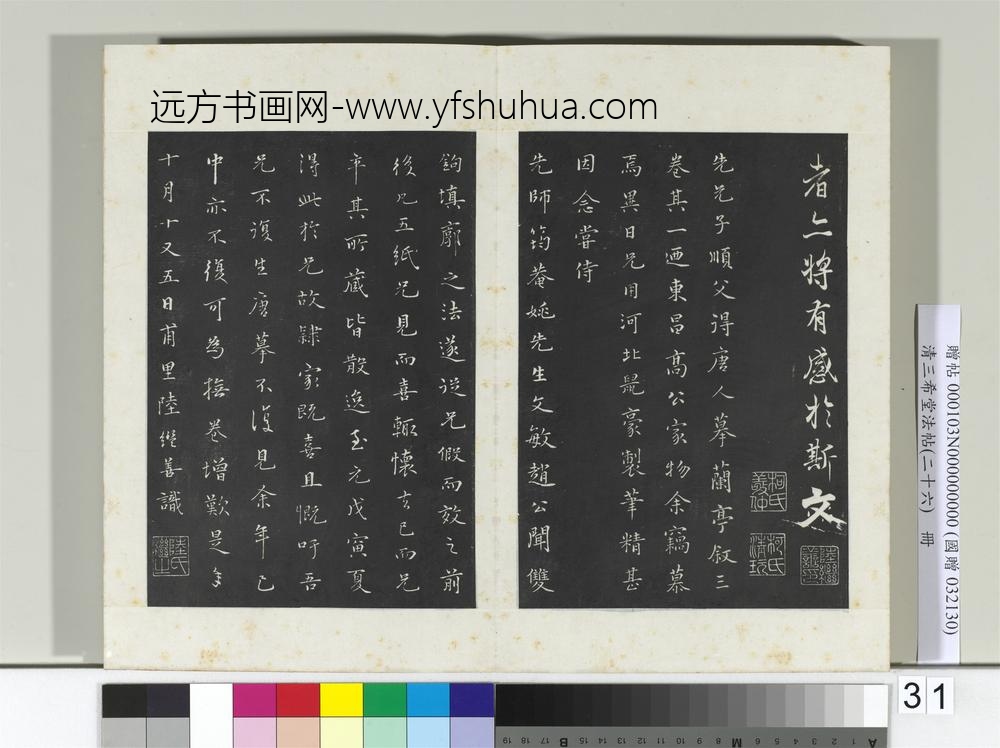 远方书画网-www.yfshuhua.com
者亦將有感於斯文
先兄子順父得唐人摹蘭亭叙三
卷其一迺東昌高公家物余竊慕
焉異日兄用河北鼠豪製筆精甚
因念嘗侍
先師筠菴姚先生文敏趙公聞雙
鉤填廓之法遂從兄假而效之前
後凡五紙兄見而喜輒懷去已而兄
卒其所藏皆散逸至元戊寅夏
得此於兄故隸家既喜且慨吁吾
兄不復生唐摹不復見余年已
中亦不復可為撫卷增歎是年
十月十又五日甫里陸繼善識
柯氏
敬仲
柯氏
清玩
陸繼
善
陸氏
繼之
贈帖 000103N000000000 (國贈 032130)
清三希堂法帖(二十六) 冊
31
19 18 17 B 16 15 14 13 12 11 10 9 8 7 M 6 5 4 3 2 1 A